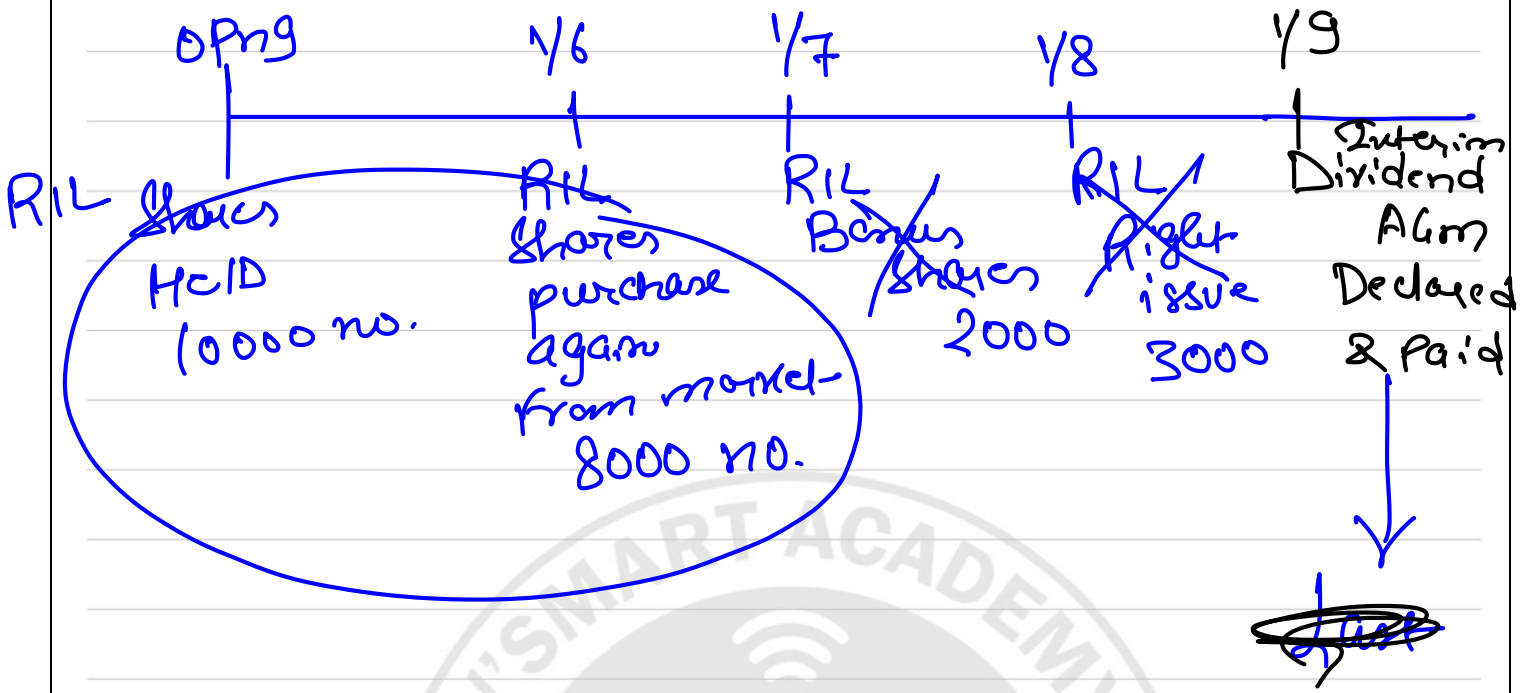 opng 1/6 1/7 1/8 1/9
RIL Shares
Held
10000 no.
RIL
Shares
purchase
again
from market
8000 no.
RIL
Bonus
Shares
2000
RIL
Right
issue
3000
Interim
Dividend
Declared
& Paid
'SMART ACADEMY